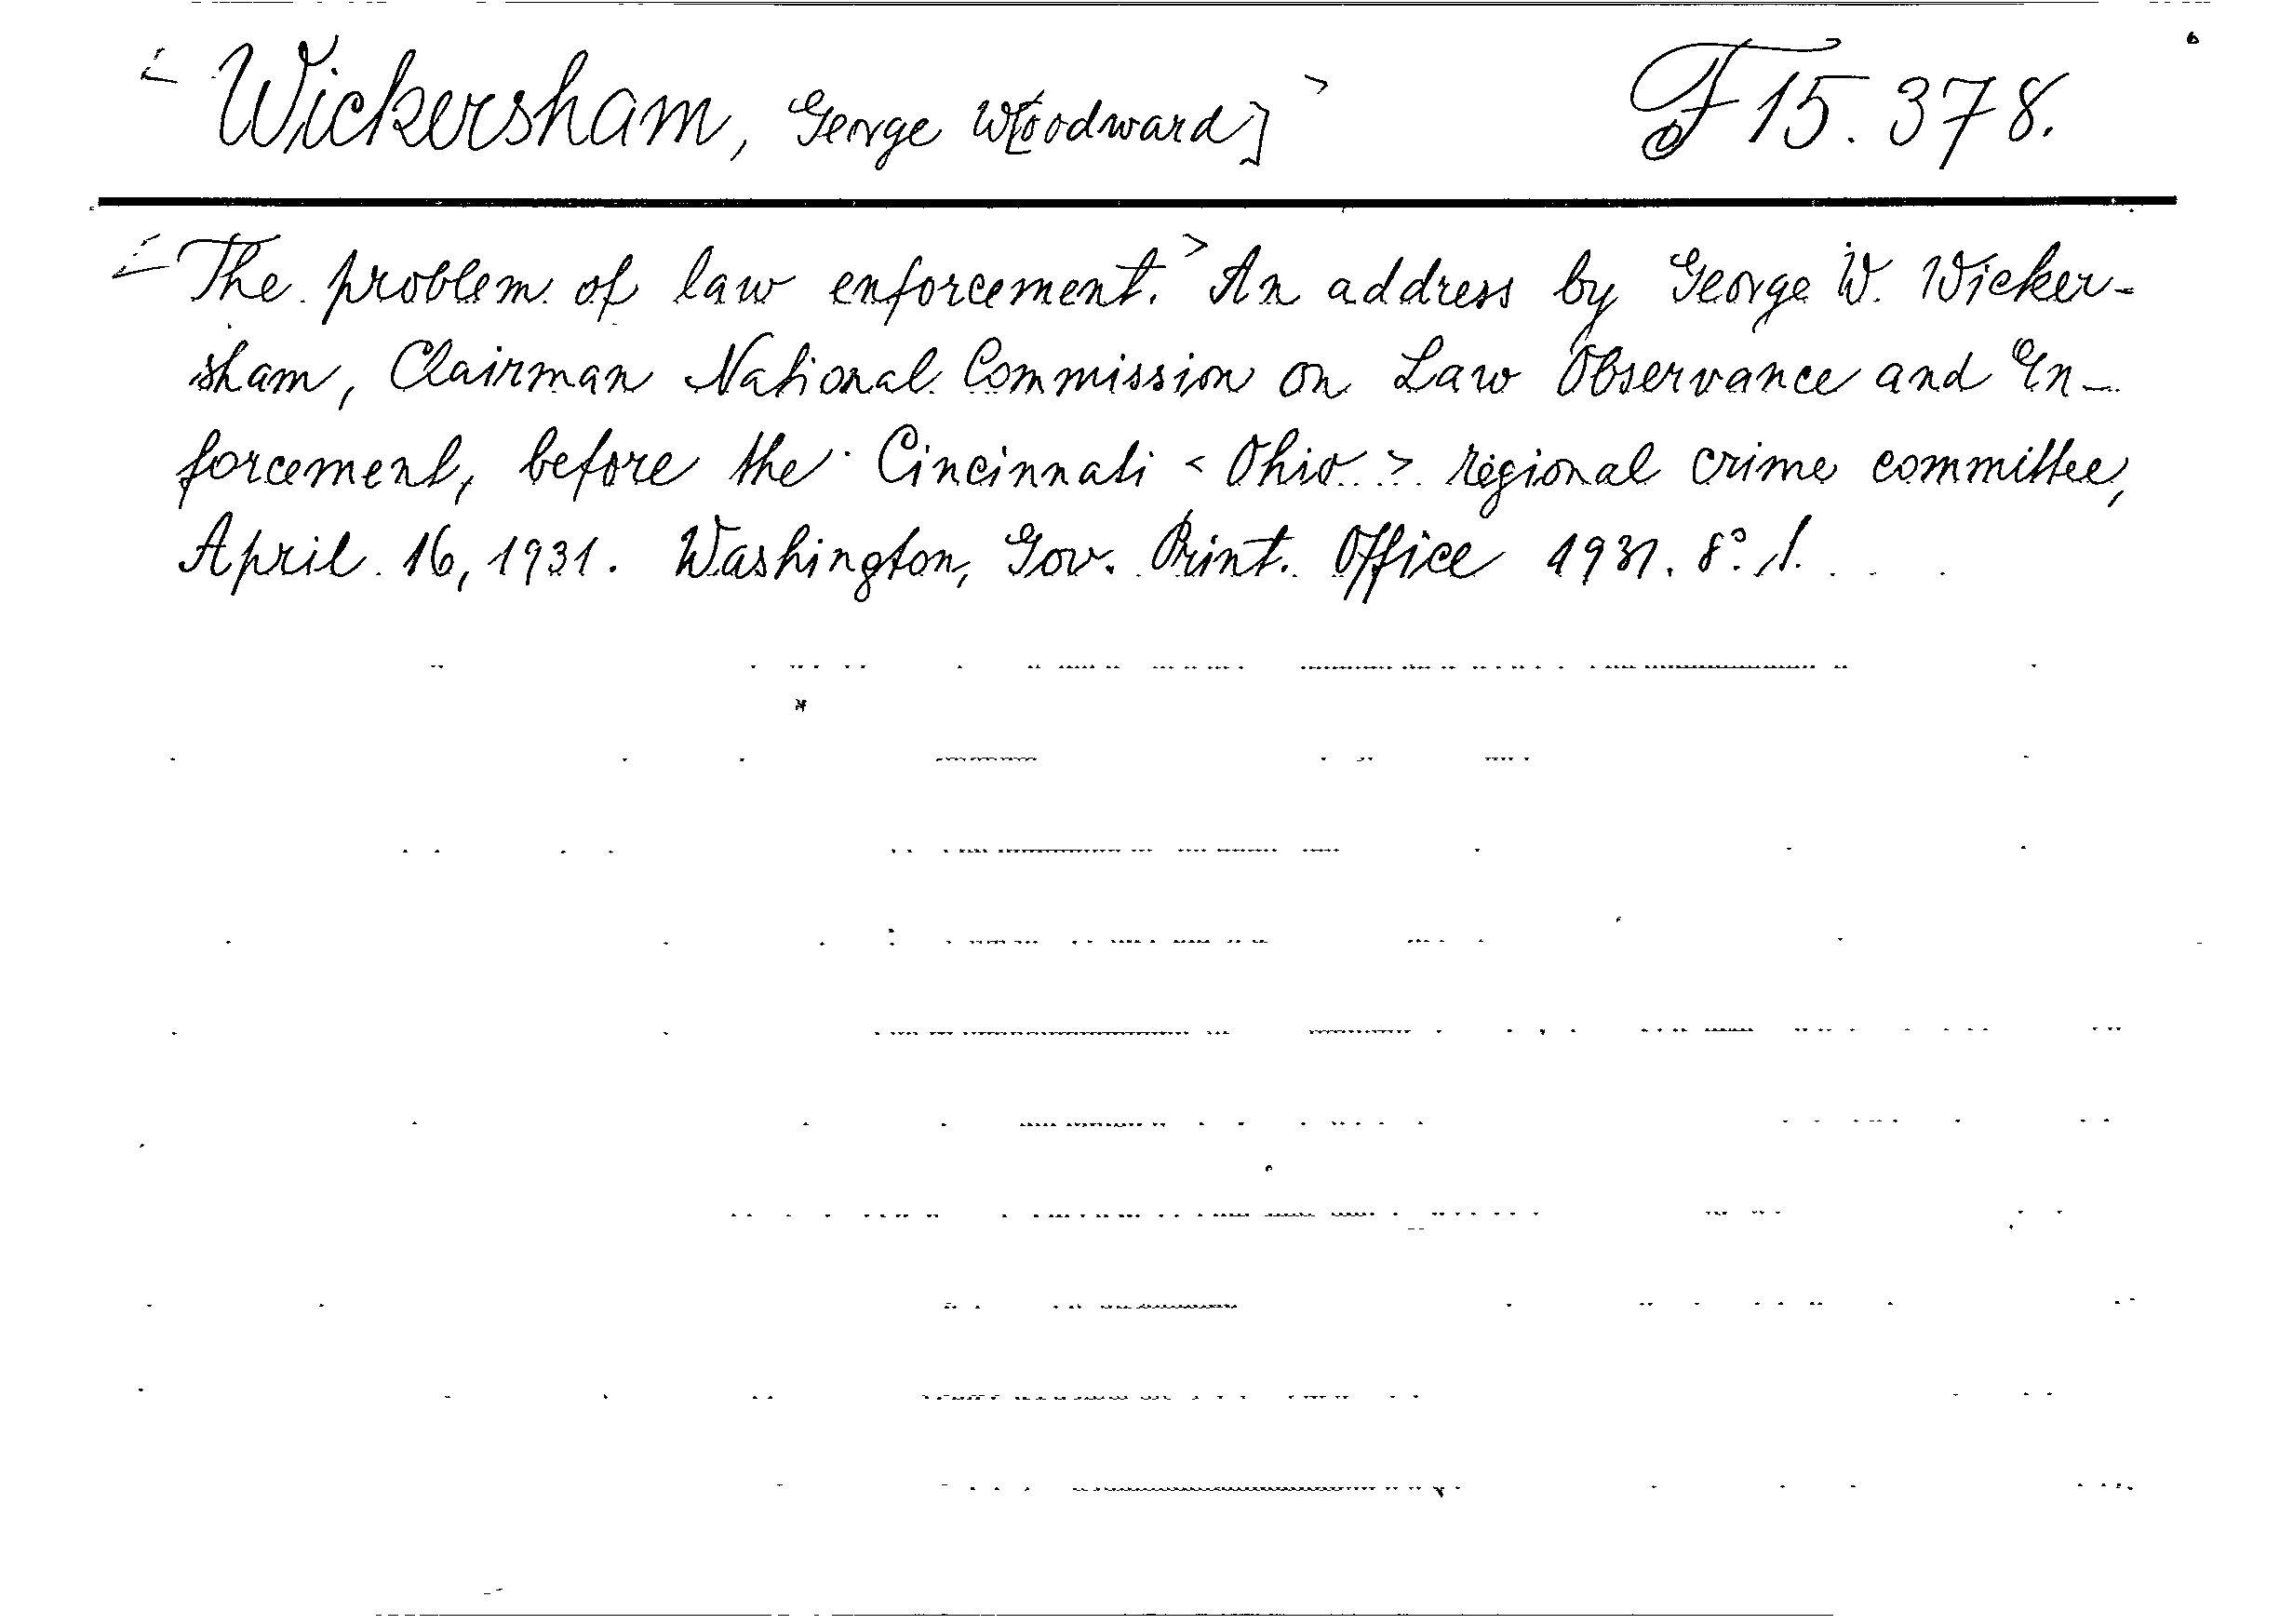 < Wickersham, George W[oodward] > F 15.378.
< The problem of law enforcement. > An address by George W. Wicker-
sham, Clairman National Commission on Law Observance and En-
forcement, before the Cincinnati < Ohio > regional crime committee,
April 16, 1931. Washington, Gov. Print. Office 1931. 8°.